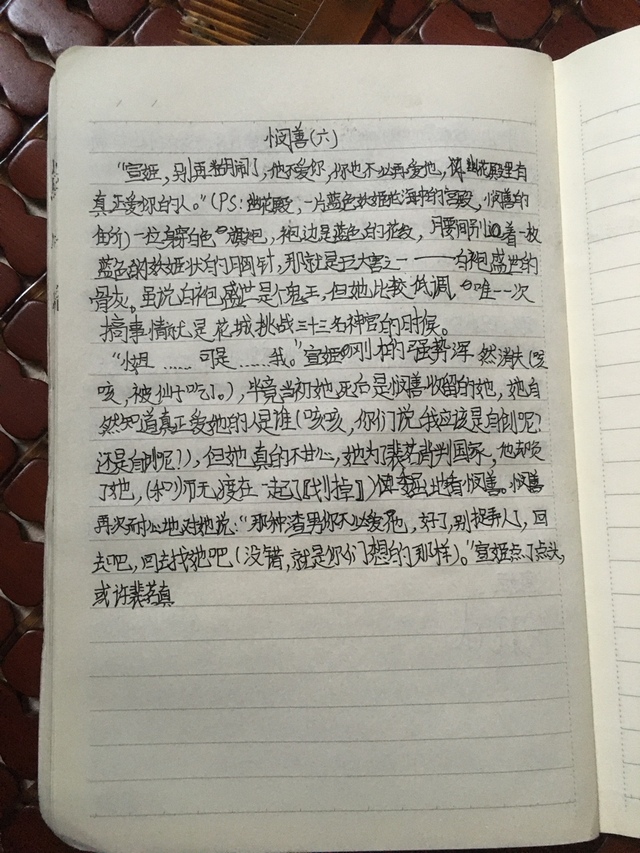 悯善(六)
“宣姬，别再胡闹了，他不爱你，你也不必再爱他，幽花殿里有
真正爱你的人。”(PS：幽花殿，一片蓝色妖姬花海中的宫殿，悯善的
住所)一位身穿白色旗袍，袍边是蓝色的花纹，腰间别着一枚
蓝色妖姬状的胸针，那就是五大害之一——白袍盛世的
骨灰。虽说白袍盛世是个鬼王，但她比较低调，唯一一次
搞事情就是花城挑战三十三名神官的时候。
“姐……可是……我。”宣姬刚才的强势浑然消失(咳
咳，被仙子吃了。)，毕竟当初她死后是悯善收留的她，她自
然知道真正爱她的人是谁(咳咳，你们说我应该是自刎呢？
还是自刎呢？)，但她真的不甘心，她为了裴茗背判国家，他却负
了她，(和师无渡在一起了〖划掉〗)倔强地看悯善。悯善
再次耐心地对她说：“那种渣男你不必爱他，好了，别捉弄人了，回
去吧，回去找她吧(没错，就是你们想的那样)。”宣姬点了点头，
或许裴茗真